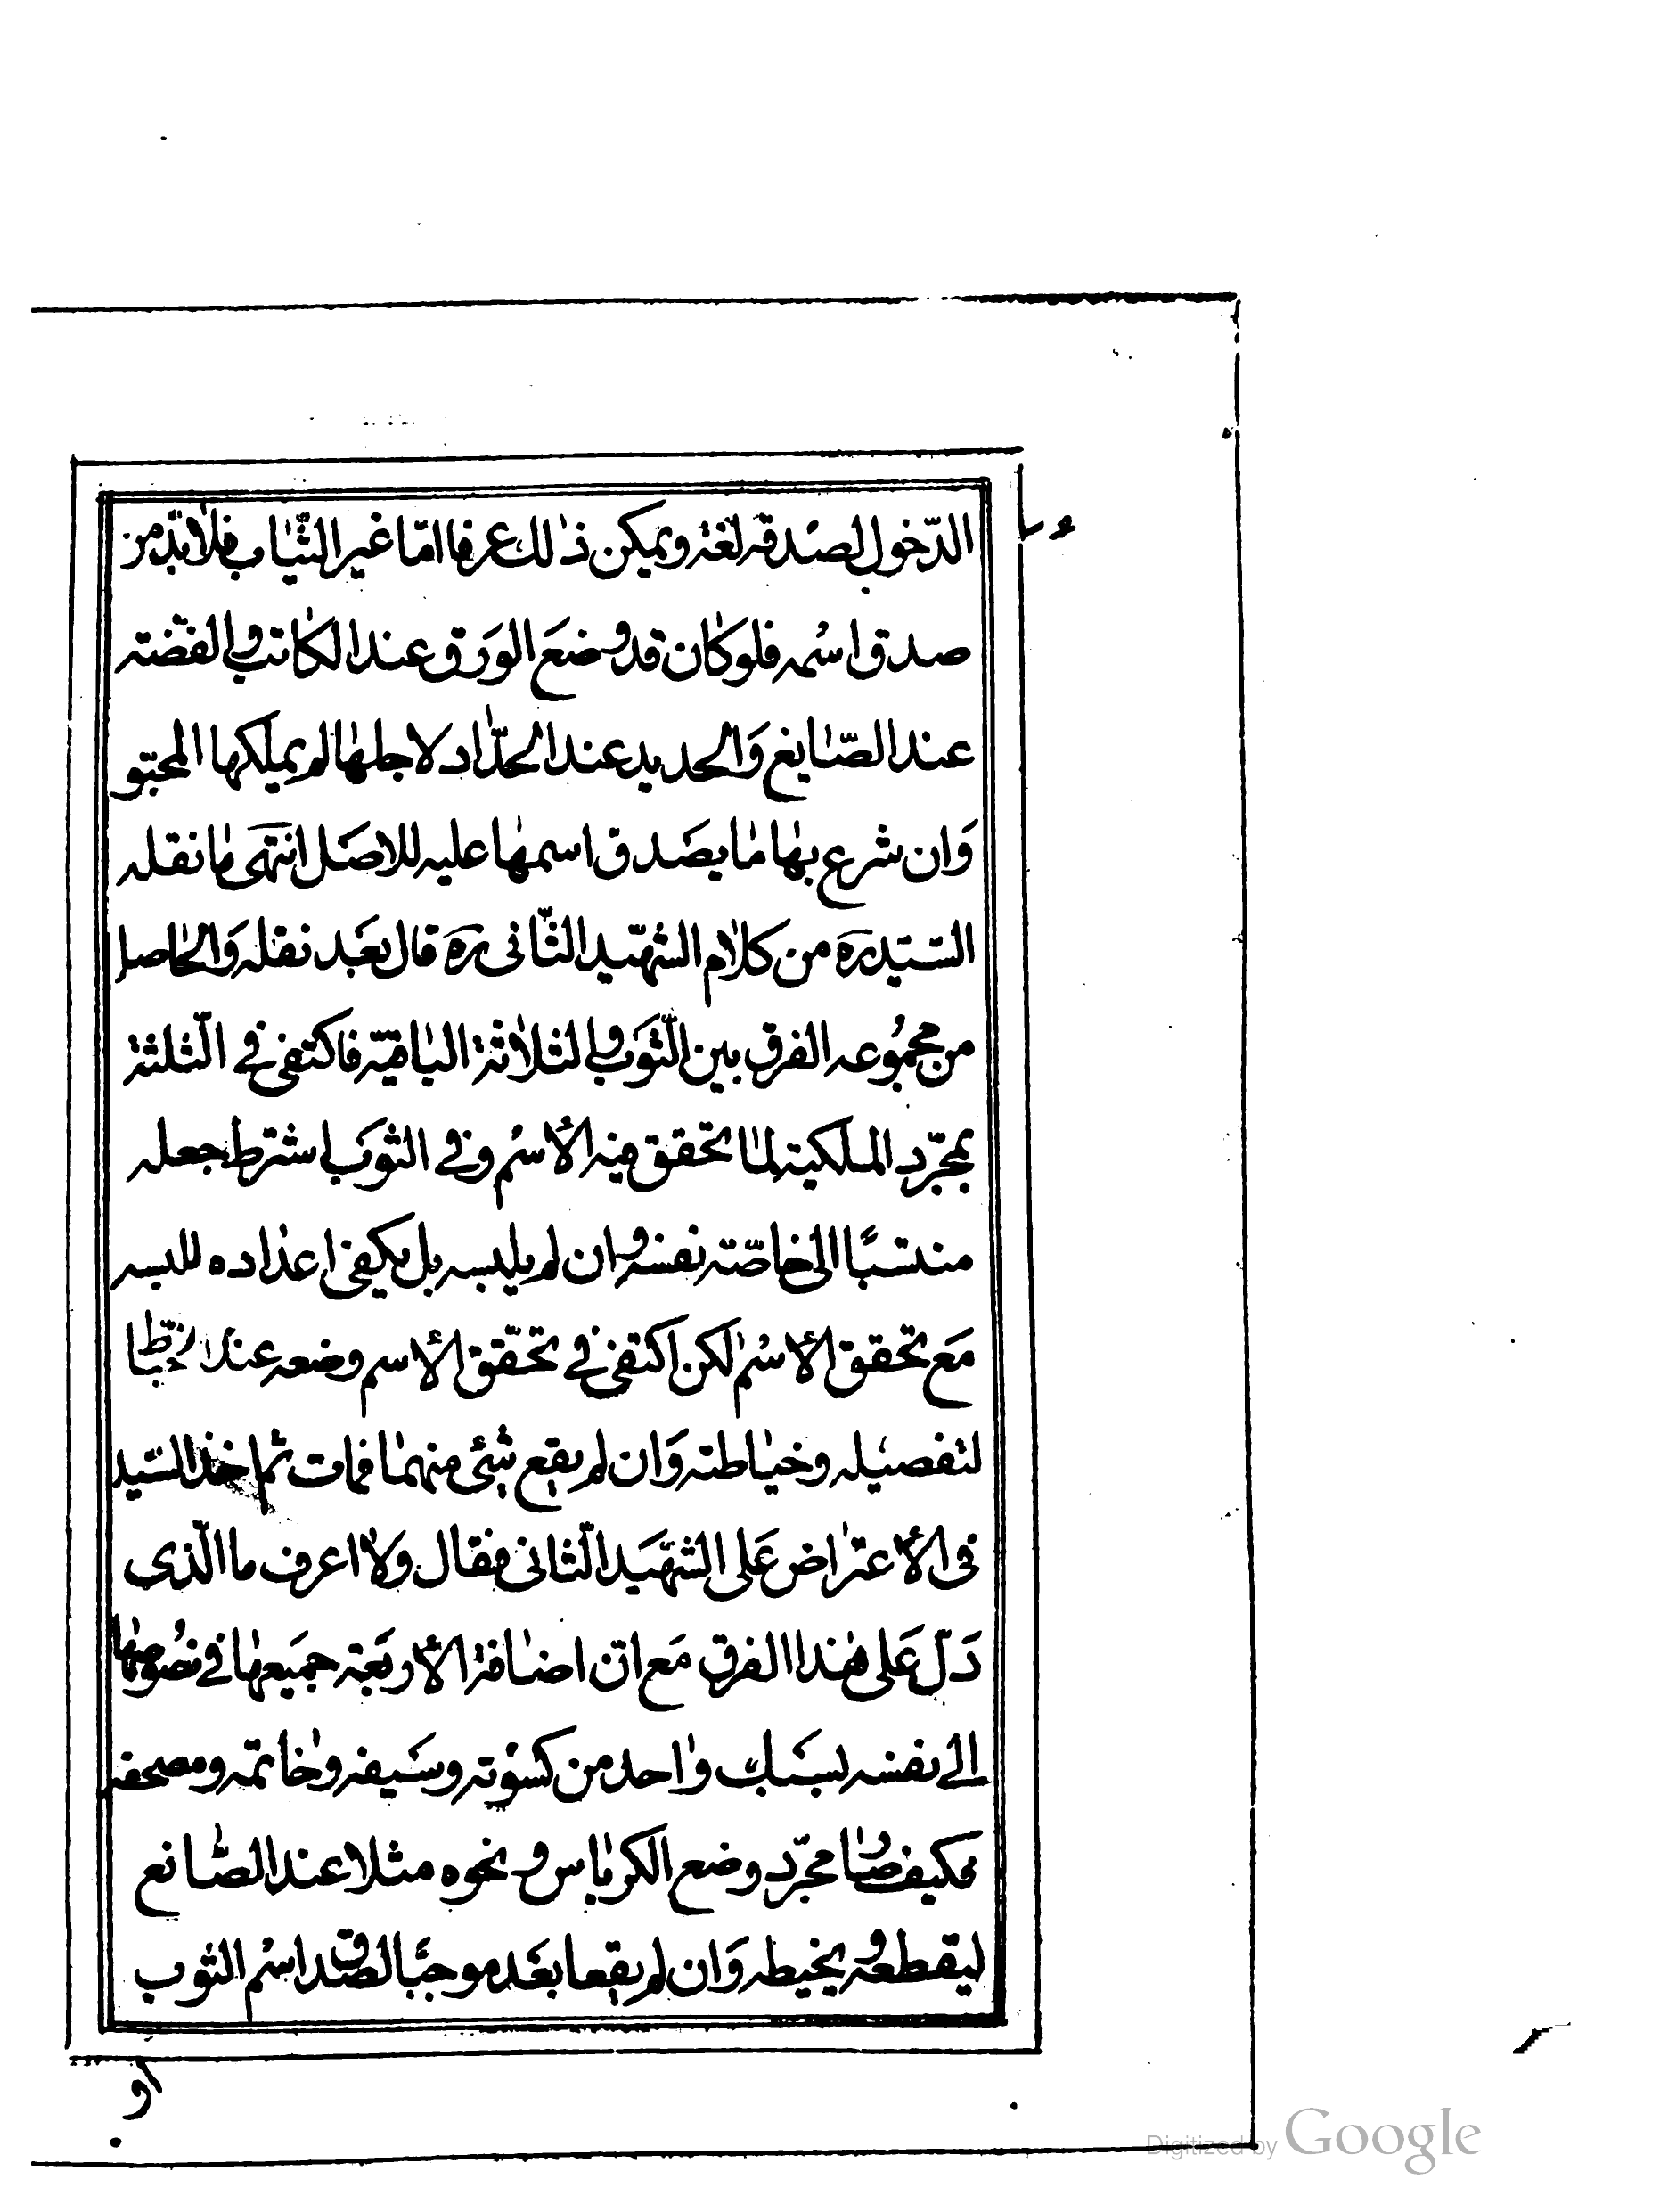 الدّخول لصدقه لغة ويمكن ذٰلك عرفا امّا غير الثّيٰاب فلٰا بدّ من
صدق اسمه فلو كٰان قد وضعَ الورق عند الكٰاتب والفضّة
عند الصّٰايغ وَالحديد عند الحدّٰاد لاجلهٰا لم يملكها المحبّو
وَان شرع بهٰا مٰا يصدق اسمهٰا عليه للاصل انتهَى مٰا نقله
السّيّد ره من كلٰام الشهّيد الثّانى ره قال بعَد نقله وَالحٰاصل
من مجموُعه الفرق بين الثّوَب والثلٰاثة البٰاقيّة فاكتفى فى الثّلثة
بمجرّد الملكية لمٰا تحقق فيه الأسُم وفى الثوَب اشترط جعله
منتسبًا الى خاصّة نفسه وان لم يلبسه بل يكفى اعدٰاده للبسه
مَع تحقق الأسُم لكن اكتفى فى تحقّق الأسم وضعه عند الخيّٰاط
لتفصيله وخيٰاطته وَان لم يقع شئ منهمٰا فمات ثم اخذ السّيد
فى الأعترٰاض عَلى الشهّيد الثّانى فقال ولٰا اعرف ما الّذى
دَلّ عَلى هٰذا الفرق مَع انّ اضٰافة الأربَعة جميَعهٰا فى نصُوصهٰا
الى نفسه لسبَاب وٰاحد من كسوُته وسَيفه وخٰاتمه ومصحفه
فكيف صٰار مجرّد وضع الكربٰاس ونحوه مثلا عند الصّٰانع
ليقطعه ويخيطه وَان لم يقعا بعَد موجبًا لصدق اسُم الثوب
او
Digitized by Google